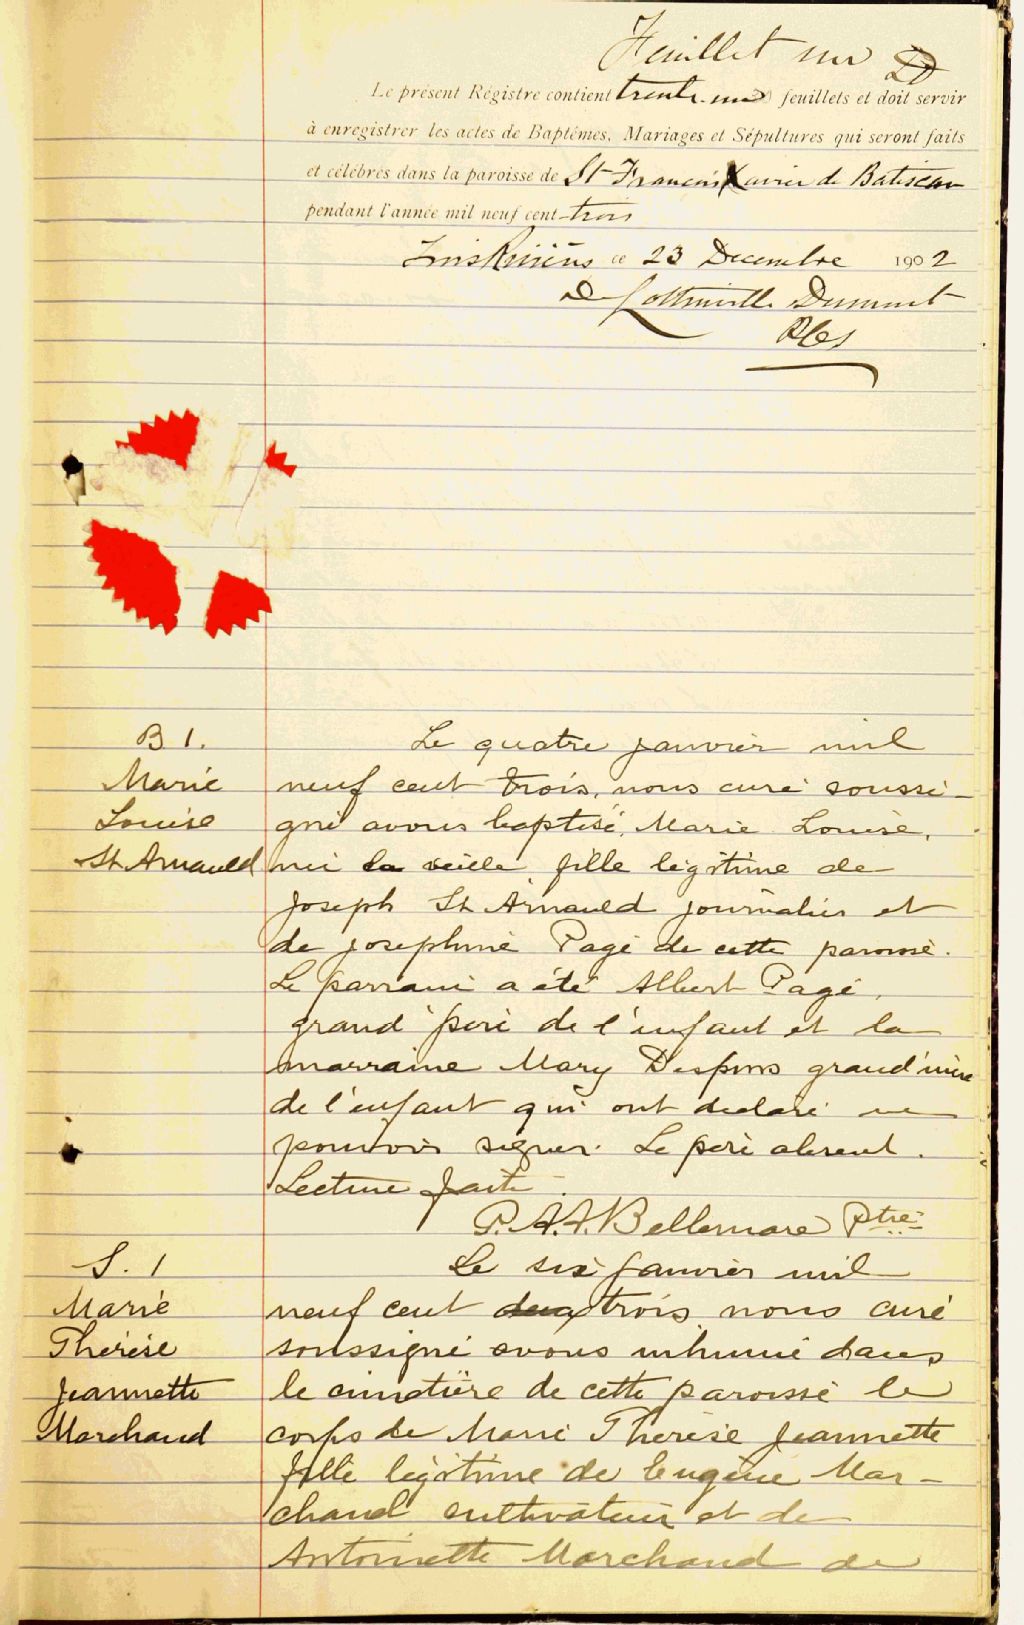 Feuillet un
Le présent Régistre contient trente-un feuillets et doit servir
à enregistrer les actes de Baptêmes, Mariages et Sépultures qui seront faits
et célébrés dans la paroisse de St François Xavier de Batiscan
pendant l'année mil neuf cent-trois
Trois Rivières ce 23 Decembre 1902
Dumont
B 1.
Marie
Louise
St Arnauld
Le quatre janvier mil
neuf cent trois, nous curé soussi-
gné avons baptisé, Marie Louise,
née la veille, fille légitime de
Joseph St Arnauld journalier et
de josephine Pagé de cette paroisse.
Le parrain a été Albert Pagé,
grand'père de l'enfant et la
marraine Mary Despins grand'mère
de l'enfant qui ont déclaré ne
pouvoir signer. Le père absent.
Lecture faite.
P. A. A. Bellemare Ptre
S. 1
Marie
Thérèse
Jeannette
Marchand
Le six janvier mil
neuf cent deux trois, nous curé
soussigné avons inhumé dans
le cimetière de cette paroisse le
corps de Marie Thérèse Jeannette
fille légitime de Eugène Mar-
chand cultivateur et de
Antoinette Marchand de